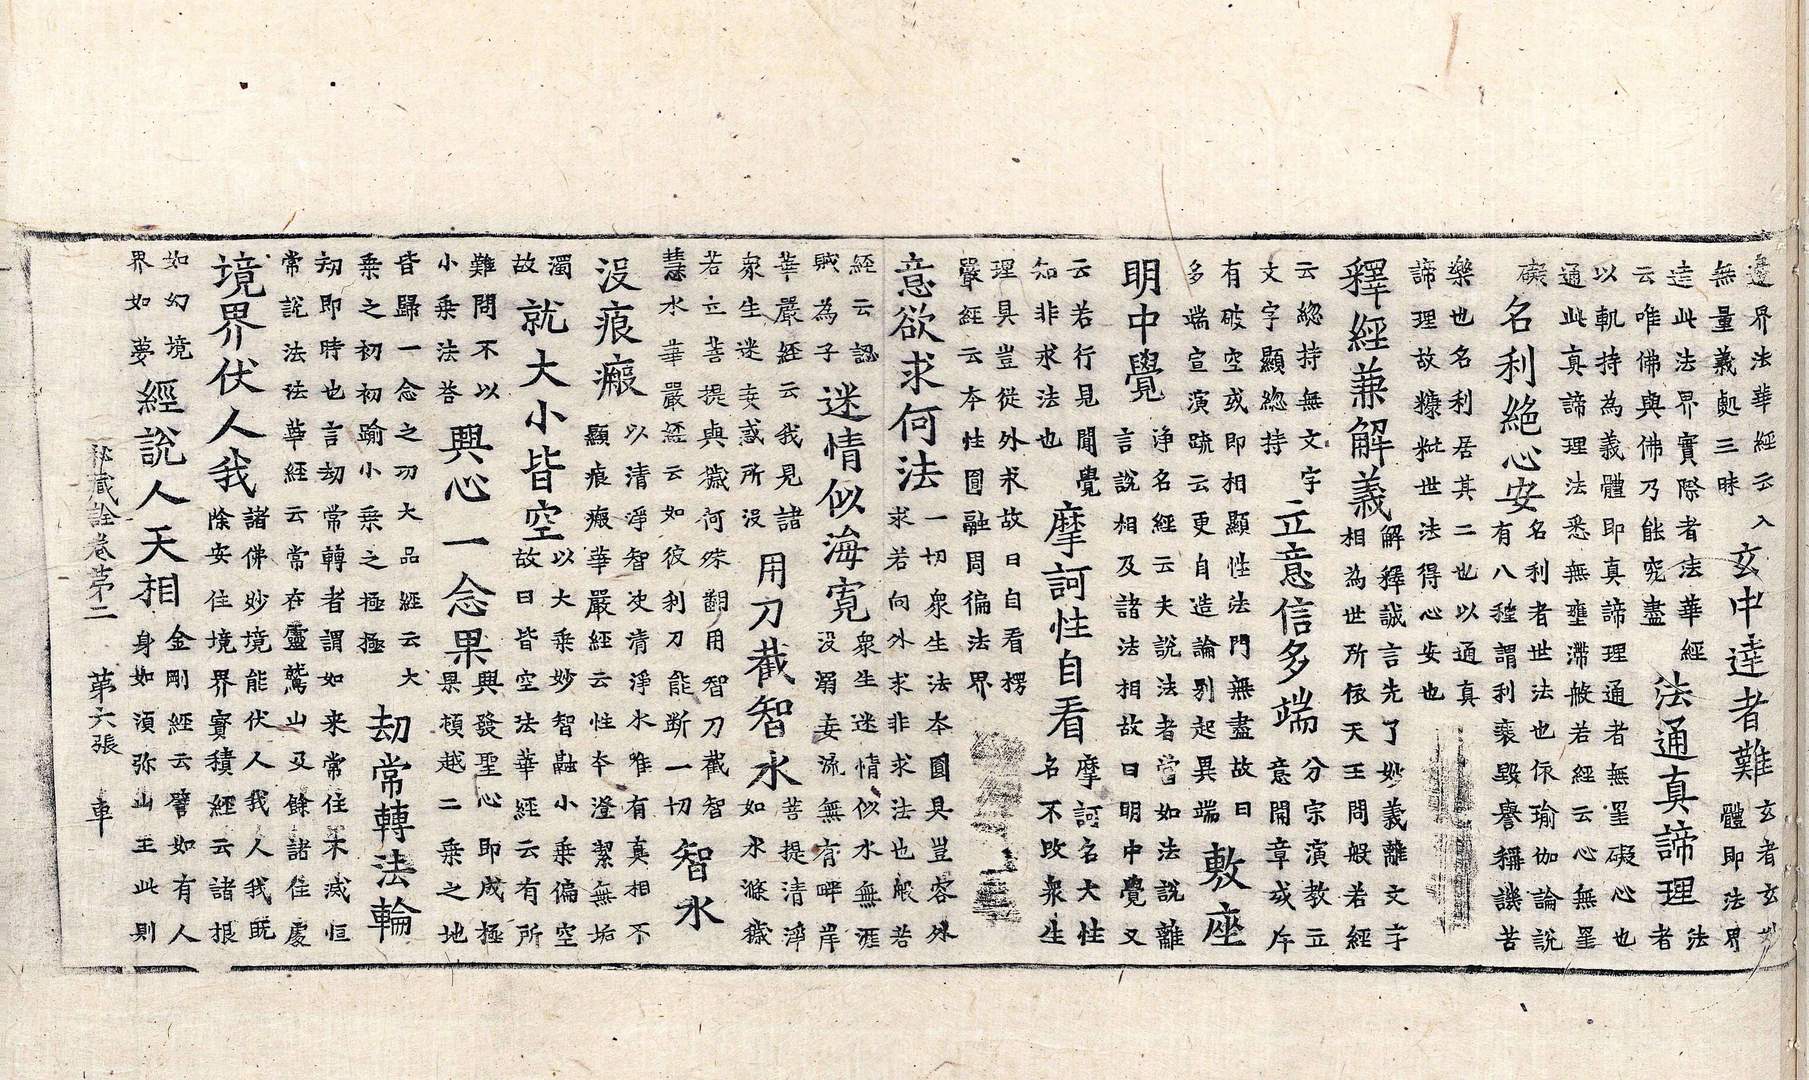 邊界法華經云入
無量義處三昧
玄中達者難
玄者玄妙
體即法界
達此法界實際者法華經
云唯佛與佛乃能究盡
法通真諦理
法
者
以軌持為義體即真諦理通者無罣礙心也
通此真諦理法悉無壅滯故若經云心無罣
礙
名利絕心安
名利者世法也依瑜伽論說
有八種謂利衰毀譽稱譏苦
樂也名利居其二也以通真
諦理故糠粃世法得心安也
釋經兼解義
解釋誠言先了妙義離文字
相為世所依天王問般若經
云緫持無文字
文字顯緫持
立意信多端
分宗演教立
意開章或斥
有破空或即相顯性法門無盡故曰
多端宣演疏云更自造論別起異端
敷座
明中覺
淨名經云夫說法者當如法說離
言說相及諸法相故曰明中覺又
云若行見聞覺
知非求法也
摩訶性自看
摩訶名大性
名不改衆生
理具豈從外求故曰自看楞
嚴經云本性圓融周徧法界
意欲求何法
一切衆生法本圓具豈容外
求若向外求非求法也般若
經云認
賊為子
迷情似海寬
衆生迷情似水無涯
沒溺妄流無有畔岸
華嚴經云我見諸
衆生迷妄惑所沒
用刀截智水
菩提清淨
如水滌穢
若立菩提與穢何殊翻用智刀截智
慧水華嚴經云如彼利刀能斷一切
智水
沒痕瘢
以清淨智決清淨水唯有真相不
顯痕瘢華嚴經云性本澄潔無垢
濁
故
就大小皆空
以大乘妙智融小乘偏空
故曰皆空法華經云有所
難問不以
小乘法答
興心一念果
興發聖心即成極
果頓越二乘之地
皆歸一念之功大品經云大
乘之初初踰小乘之極極
劫常轉法輪
劫即時也言劫常轉者謂如來常住不滅恒
常說法法華經云常在靈鷲山及餘諸住處
境界伏人我
諸佛妙境能伏人我人我既
除安住境界寶積經云諸根
如幻境
界如夢
經說人天相
金剛經云譬如有人
身如須弥山王此則
秘藏詮卷第二　第六張　車